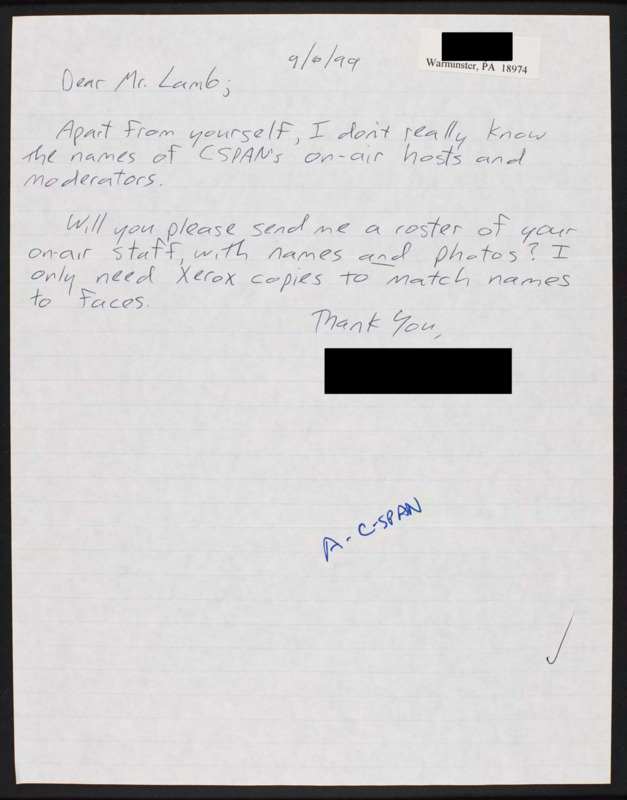 9/6/99
Warminster, PA 18974
Dear Mr. Lamb;
Apart from yourself, I don't really know
the names of CSPAN's on-air hosts and
moderators.
Will you please send me a roster of your
on-air staff, with names and photos? I
only need Xerox copies to match names
to faces.
Thank You,
A-C-SPAN